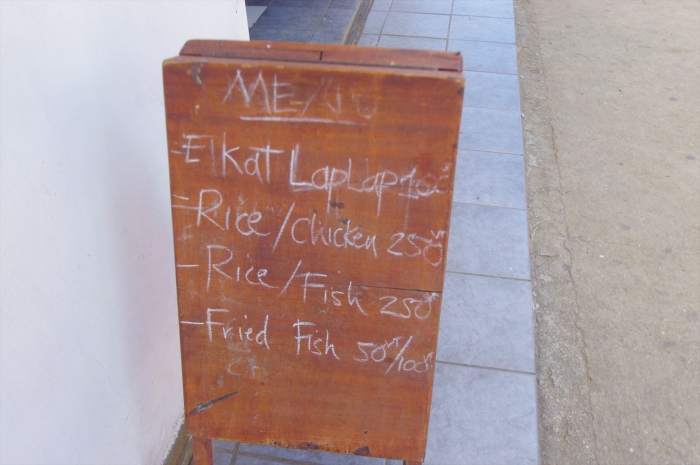 MENU
- Elkat LapLap 100vt
- Rice/Chicken 250vt
- Rice/Fish 250vt
- Fried Fish 50vt/100vt